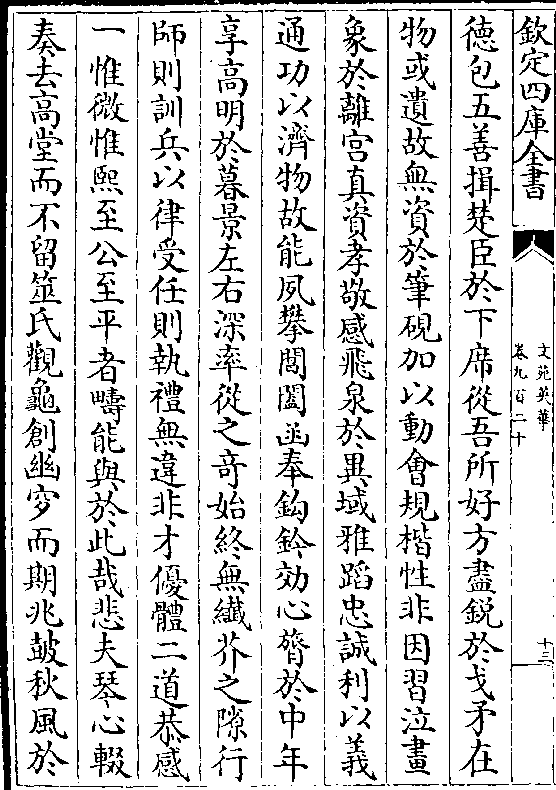 欽定四庫全書
文苑英華
卷九百二十
十三
徳包五善揖楚臣於下席從吾所好方盡鋭於戈矛在
物或遺故無資於筆硯加以動會規楷性非因習泣畫
象於離宫真資孝敬感飛泉於異域雅蹈忠誠利以義
通功以濟物故能夙攀閶闔亟奉鈎鈐効心膂於中年
享高明於暮景左右深率從之竒始終無纖芥之隙行
師則訓兵以律受任則執禮無違非才優體二道恭感
一惟微惟熙至公至平者疇能與於此哉悲夫琴心輟
奏去高堂而不留筮氏觀龜創幽穸而期兆鼓秋風於